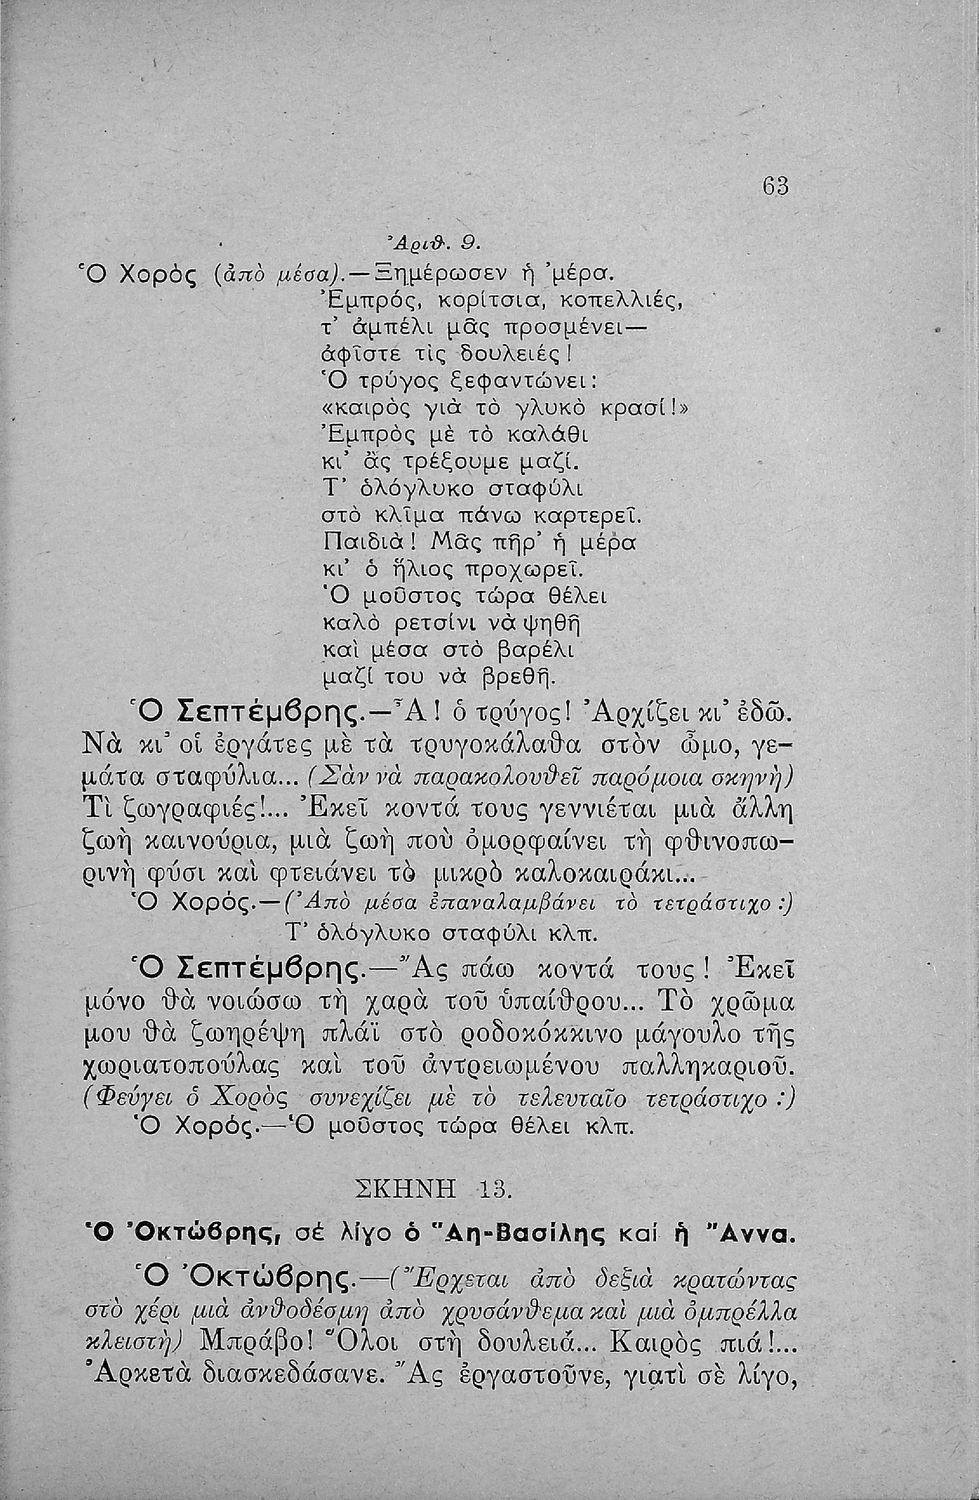 63
Ἀριθ. 9.
Ὁ Χορὸς (ἀπὸ μέσα).—Ξημέρωσεν ἡ ’μέρα.
Ἐμπρός, κορίτσια, κοπελλιές,
τ’ ἀμπέλι μᾶς προσμένει—
ἀφῖστε τὶς δουλειές!
Ὁ τρύγος ξεφαντώνει:
«καιρὸς γιὰ τὸ γλυκὸ κρασί!»
Ἐμπρὸς μὲ τὸ καλάθι
κι’ ἂς τρέξουμε μαζί.
Τ’ ὁλόγλυκο σταφύλι
στὸ κλῖμα πάνω καρτερεῖ.
Παιδιὰ! Μᾶς πῆρ’ ἡ μέρα
κι’ ὁ ἥλιος προχωρεῖ.
Ὁ μοῦστος τώρα θέλει
καλὸ ρετσίνι νὰ ψηθῆ
καὶ μέσα στὸ βαρέλι
μαζί του νὰ βρεθῆ.
Ὁ Σεπτέμβρης.—Ἆ! ὁ τρύγος! Ἀρχίζει κι’ ἐδῶ.
Νὰ κι’ οἱ ἐργάτες μὲ τὰ τρυγοκάλαθα στὸν ὦμο, γε-
μάτα σταφύλια... (Σὰν νὰ παρακολουθεῖ παρόμοια σκηνὴ)
Τὶ ζωγραφιές!... Ἐκεῖ κοντά τους γεννιέται μιὰ ἄλλη
ζωὴ καινούρια, μιὰ ζωὴ ποὺ ὀμορφαίνει τὴ φθινοπω-
ρινὴ φύσι καὶ φτειάνει τὸ μικρὸ καλοκαιράκι...
Ὁ Χορός.—(Ἀπὸ μέσα ἐπαναλαμβάνει τὸ τετράστιχο:)
Τ’ ὁλόγλυκο σταφύλι κλπ.
Ὁ Σεπτέμβρης.—Ἂς πάω κοντά τους! Ἐκεῖ
μόνο θὰ νοιώσω τὴ χαρὰ τοῦ ὑπαίθρου... Τὸ χρῶμα
μου θὰ ζωηρέψη πλάϊ στὸ ροδοκόκκινο μάγουλο τῆς
χωριατοπούλας καὶ τοῦ ἀντρειωμένου παλληκαριοῦ.
(Φεύγει ὁ Χορὸς συνεχίζει μὲ τὸ τελευταῖο τετράστιχο:)
Ὁ Χορός.—Ὁ μοῦστος τώρα θέλει κλπ.
ΣΚΗΝΗ 13.
Ὁ Ὀκτώβρης, σέ λίγο ὁ Ἁη-Βασίλης καί ἡ Ἄννα.
Ὁ Ὀκτώβρης.—(Ἔρχεται ἀπὸ δεξιὰ κρατώντας
στὸ χέρι μιὰ ἀνθοδέσμη ἀπὸ χρυσάνθεμα καὶ μιὰ ὀμπρέλλα
κλειστὴ) Μπράβο! Ὅλοι στὴ δουλειά... Καιρὸς πιά!...
Ἀρκετὰ διασκεδάσανε. Ἂς ἐργαστοῦνε, γιατὶ σὲ λίγο,